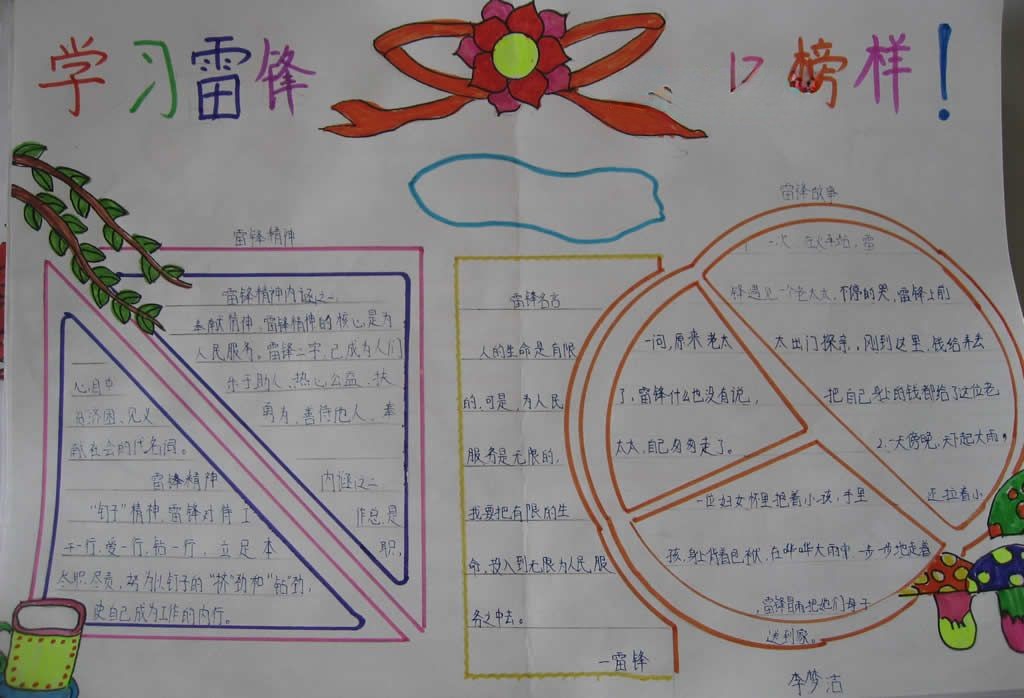 学习雷锋 榜样！
雷锋精神
雷锋精神内涵之一
奉献精神、雷锋精神的核心是为
人民服务。雷锋二字、已成为人们
心目中 乐于助人、热心公益、扶
贫济困、见义 勇为、善待他人、奉
献社会的代名词。
雷锋精神 内涵之二
“钉子”精神、雷锋对待工 作总是
干一行、爱一行、钻一行，立足本 职，
尽职尽责，努力从钉子的“挤”劲和“钻”劲，
使自己成为工作的内行。
雷锋名言
人的生命是有限
的，可是，为人民
服务是无限的，
我要把有限的生
命，投入到无限为人民服
务之中去。
一雷锋
雷锋故事
一次 在火车站，雷
锋遇见一个老太太，不停的哭，雷锋上前
一问，原来老太 太出门探亲，刚到这里，钱给弄丢
了，雷锋什么也没有说， 把自己身上的钱都给了这位老
太太，自己匆匆走了。 2.一天傍晚，天下起大雨，
一位妇女怀里抱着小孩，手里 还拉着小
孩，身上背着包袱，在哗哗大雨中一步一步地走着
，雷锋冒雨把她们母子
送到家。
李梦洁